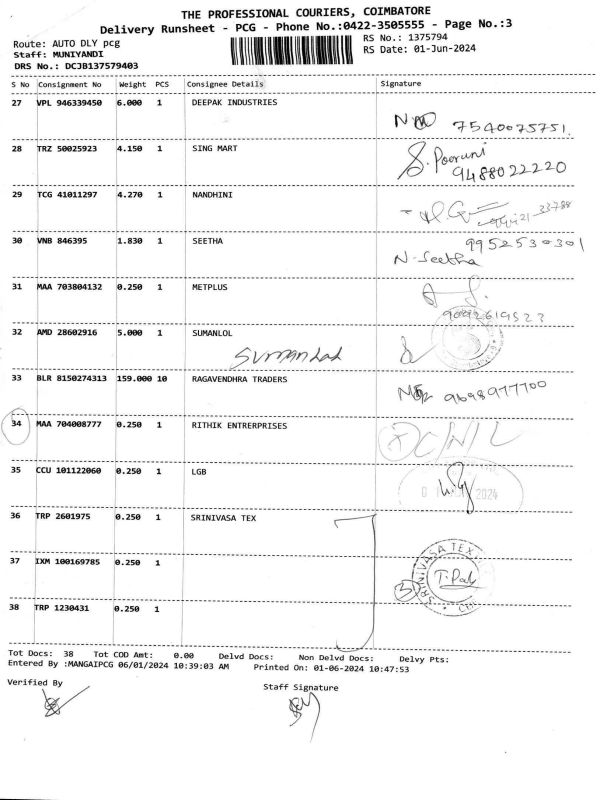 THE PROFESSIONAL COURIERS, COIMBATORE
Delivery Runsheet - PCG - Phone No.:0422-3505555 - Page No.:3
Route: AUTO DLY pcg
RS No.: 1375794
Staff: MUNIYANDI
RS Date: 01-Jun-2024
DRS No.: DCJB137579403
S No Consignment No Weight PCS Consignee Details Signature
27 VPL 946339450 6.000 1 DEEPAK INDUSTRIES
7540075751
28 TRZ 50025923 4.150 1 SING MART
S. Poorani
9488022220
29 TCG 41011297 4.270 1 NANDHINI
30 VNB 846395 1.830 1 SEETHA
9952530301
N. Seetha
31 MAA 703804132 0.250 1 METPLUS
9092619523
32 AMD 28602916 5.000 1 SUMANLOL
33 BLR 8150274313 159.000 10 RAGAVENDHRA TRADERS
9698977700
34 MAA 704008777 0.250 1 RITHIK ENTRERPRISES
35 CCU 101122060 0.250 1 LGB
2024
36 TRP 2601975 0.250 1 SRINIVASA TEX
37 IXM 100169785 0.250 1
SRINIVASA TEX
3
38 TRP 1230431 0.250 1
Tot Docs: 38 Tot COD Amt: 0.00 Delvd Docs: Non Delvd Docs: Delvy Pts:
Entered By :MANGAIPCG 06/01/2024 10:39:03 AM Printed On: 01-06-2024 10:47:53
Verified By
Staff Signature